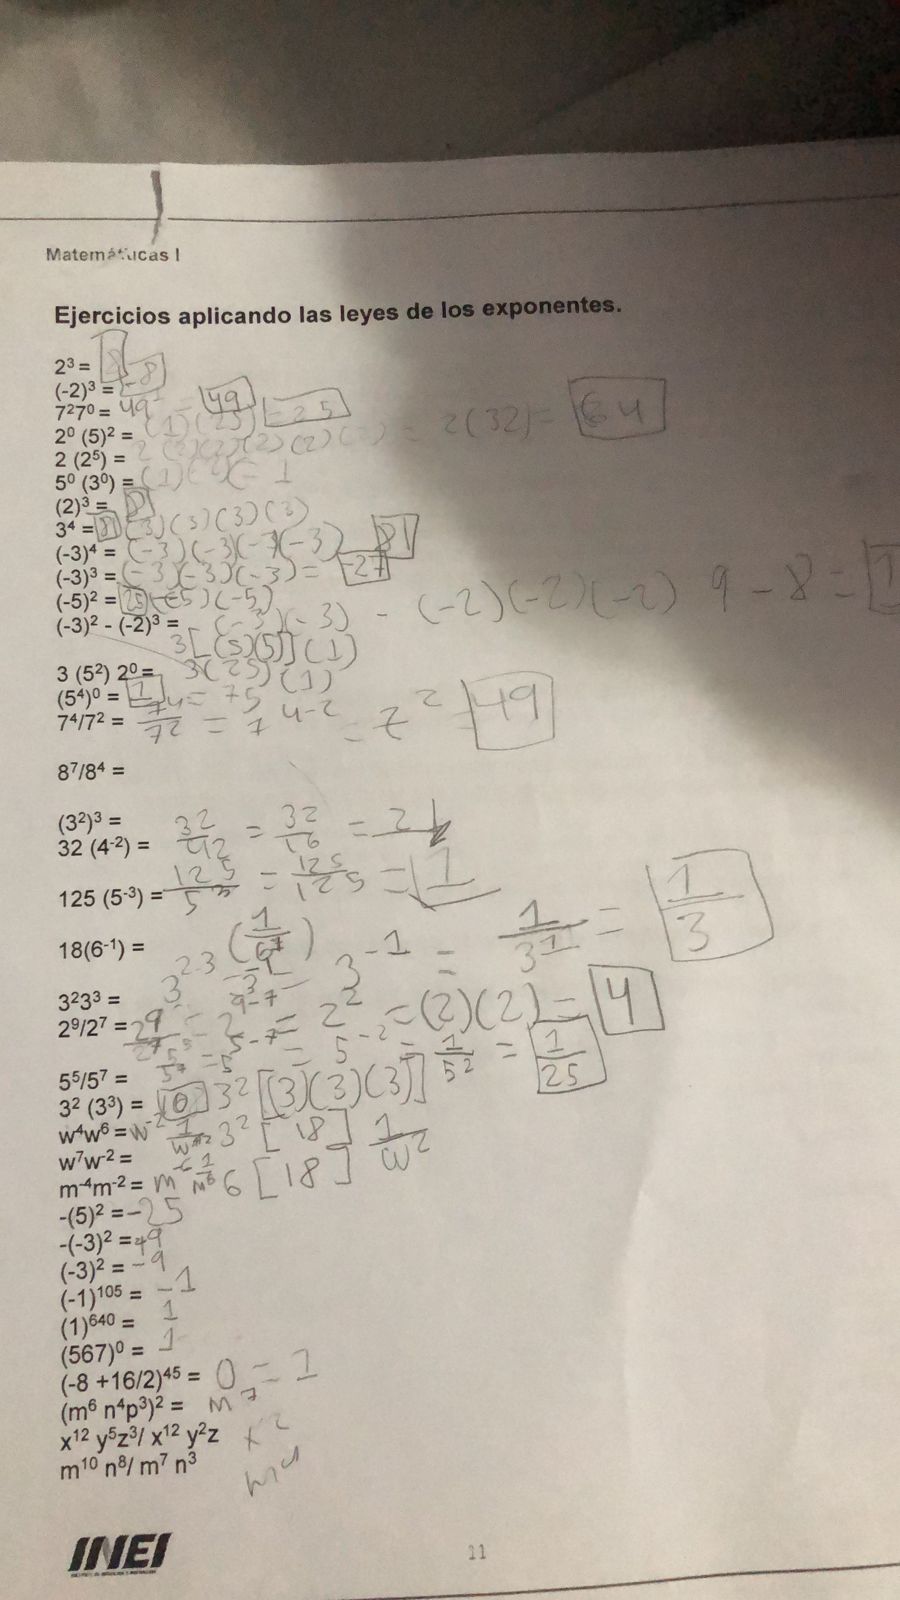 Matemáticas I
Ejercicios aplicando las leyes de los exponentes.
2³ = 8
(-2)³ = -8
7²7⁰ = 49 = 49
2⁰ (5)² = (1)(25) = 25
2 (2⁵) = 2(2)(2)(2)(2)(2) = 2(32) = 64
5⁰ (3⁰) = (1)(1) = 1
(2)³ = 8
3⁴ = 81 (3)(3)(3)(3)
(-3)⁴ = (-3)(-3)(-3)(-3) 81
(-3)³ = (-3)(-3)(-3) = -27
(-5)² = 25 (-5)(-5)
(-3)² - (-2)³ = (-3)(-3) - (-2)(-2)(-2) 9 - 8 = 1
3[(5)(5)](1)
3 (5²) 2⁰ = 3(25)(1)
(5⁴)⁰ = 1 = 75
7⁴/7² = 7⁴/7² = 7⁴⁻² = 7² = 49
8⁷/8⁴ =
(3²)³ =
32 (4⁻²) = 32/4² = 32/16 = 2
125 (5⁻³) = 125/5³ = 125/125 = 1
18(6⁻¹) =
3²3³ = 3²⁻³ = 3⁻¹ = 1/3¹ = 1/3
2⁹/2⁷ = 2⁹/2⁷ = 2⁹⁻⁷ = 2² = (2)(2) = 4
5⁵/5⁷ = 5⁵/5⁷ = 5⁵⁻⁷ = 5⁻² = 1/5² = 1/25
3² (3³) = 3² [(3)(3)(3)]
w⁴w⁶ = w⁻² 3² [18] 1/w²
w⁷w⁻² =
m⁻⁴m⁻² = m⁻⁶ 1/m⁶ 6 [18]
-(5)² = -25
-(-3)² = 9
(-3)² = -9
(-1)¹⁰⁵ = -1
(1)⁶⁴⁰ = 1
(567)⁰ = 1
(-8 +16/2)⁴⁵ = 0 = 1
(m⁶ n⁴p³)² = m⁷
x¹² y⁵z³/ x¹² y²z x²
m¹⁰ n⁸/ m⁷ n³ m⁴
INEI
11